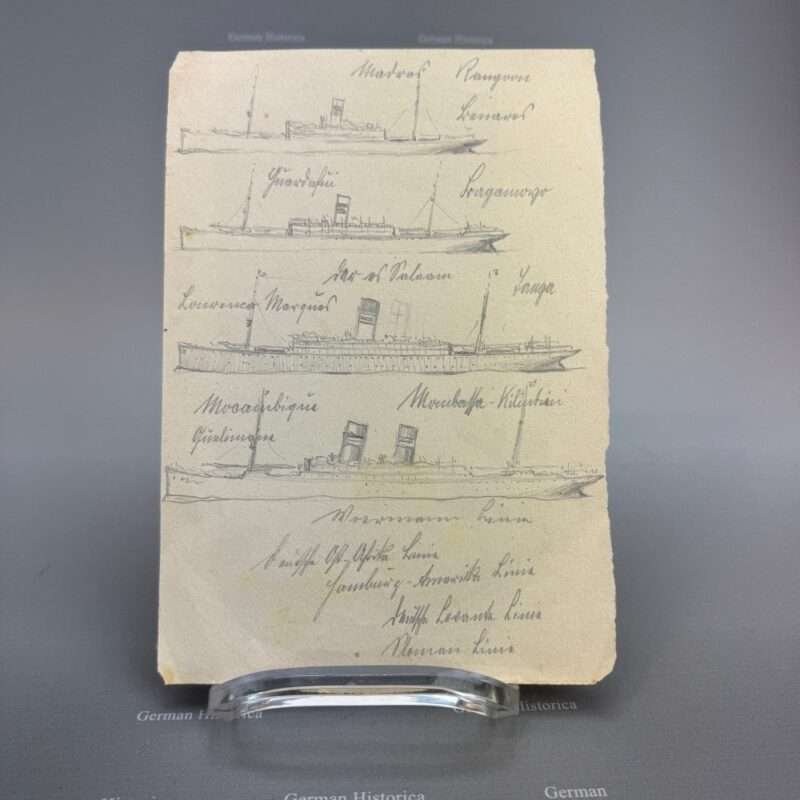 German Historica German Historica
Madras Rangoon
Benares
Guardafui Bagamoyo
Dar es Salaam Tanga
Lourenco Marques
Mocambique Mombassa - Kilindini
Quelimane
Woermann Linie
Deutsche Ost-Afrika Linie
Hamburg - Amerika Linie
Deutsche Levante Linie
Sloman Linie
German Historica
German
German Historica